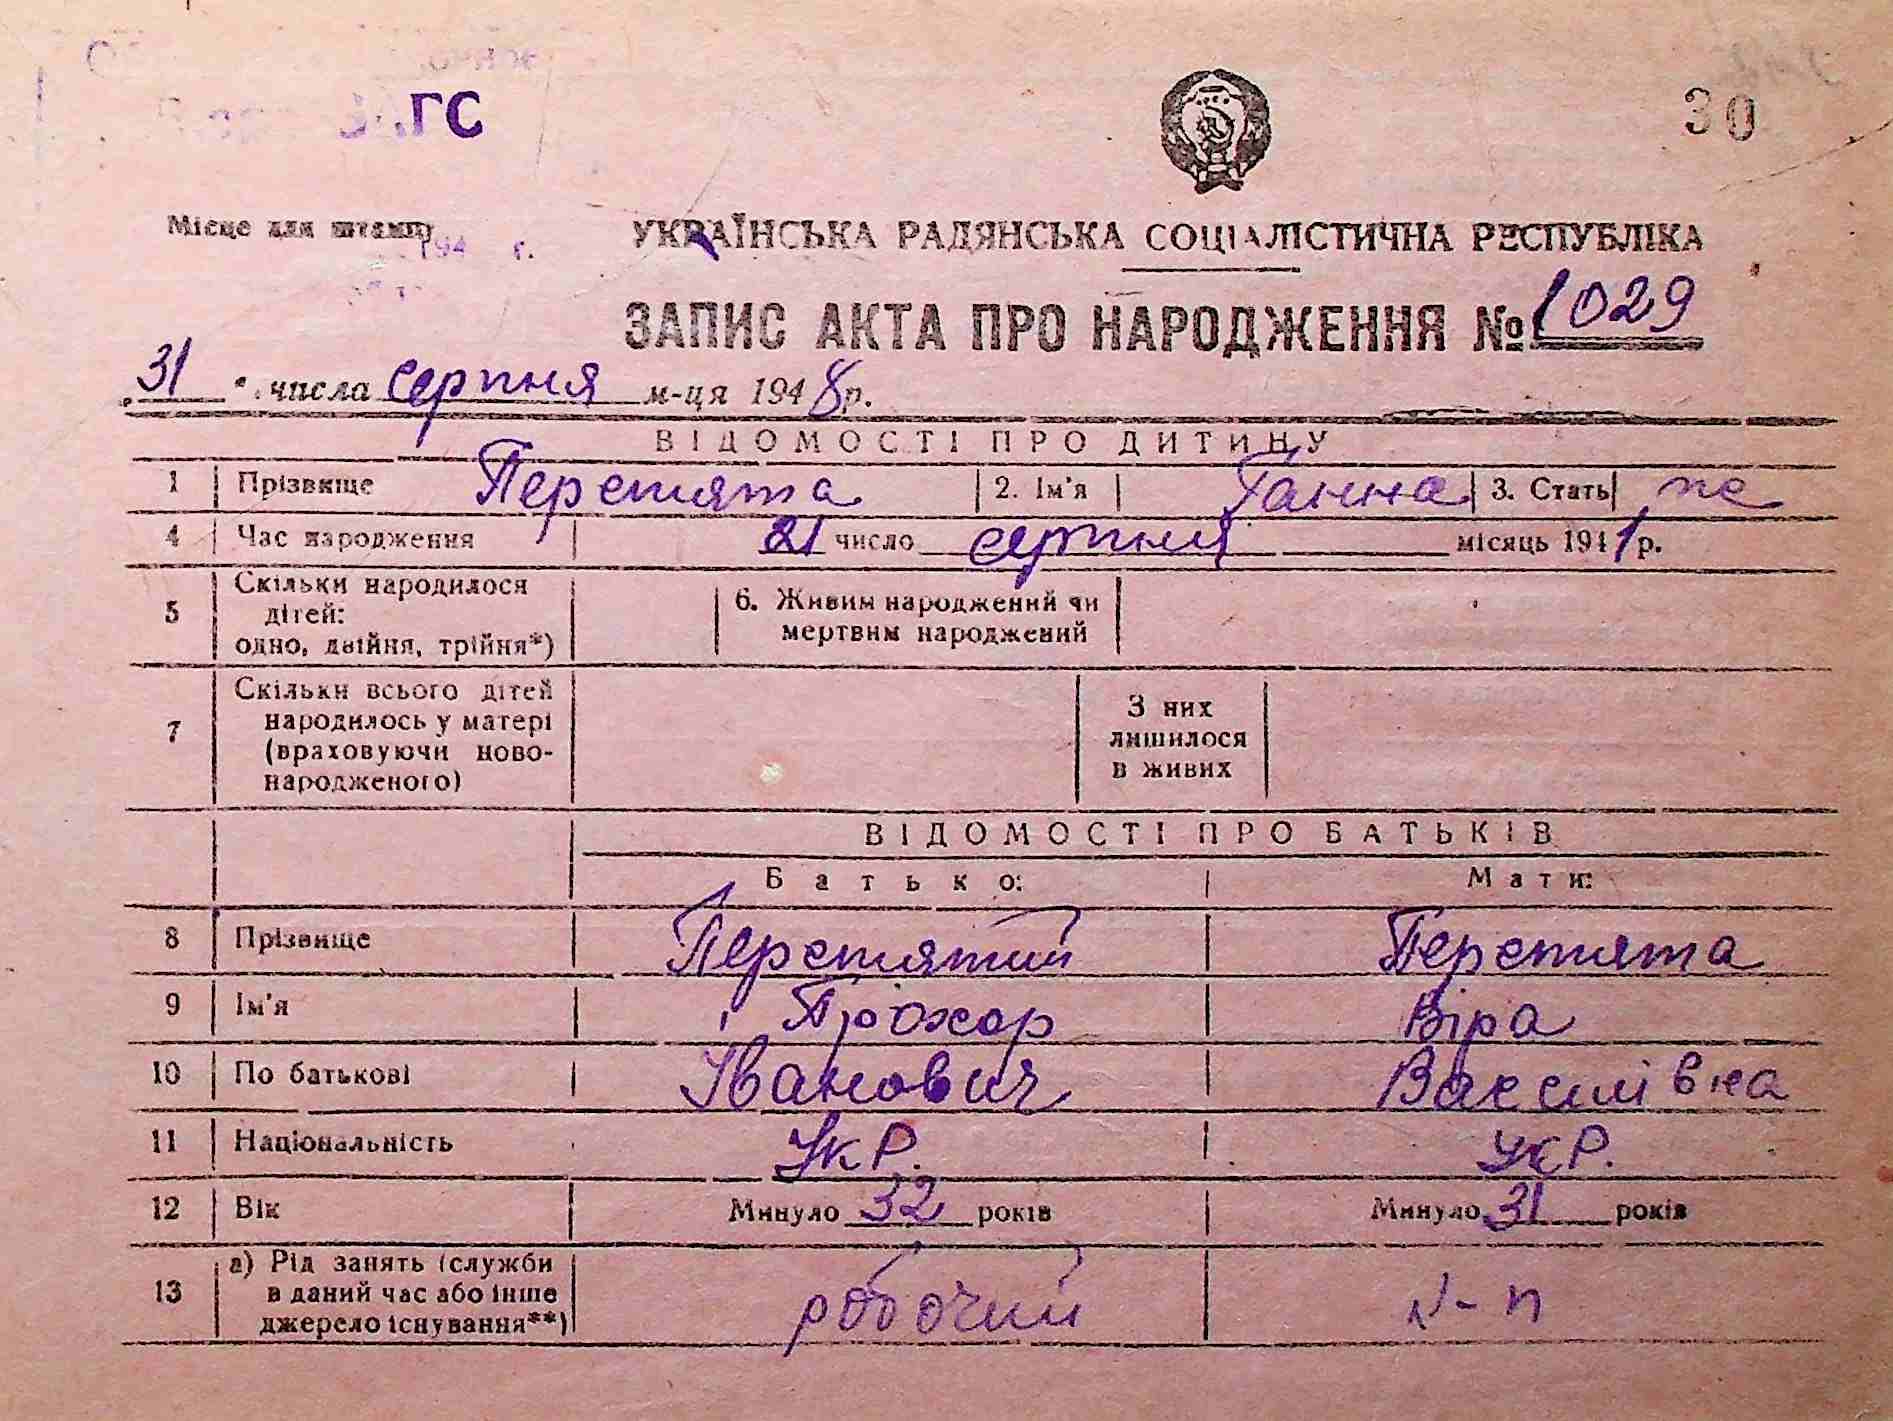 ГС
30
Місце для штампу
194 г.
УКРАЇНСЬКА РАДЯНСЬКА СОЦІАЛІСТИЧНА РЕСПУБЛІКА
ЗАПИС АКТА ПРО НАРОДЖЕННЯ № 1029
„31“ числа серпня м-ця 1948 р.
ВІДОМОСТІ ПРО ДИТИНУ
1 Прізвище Перетята 2. Ім'я Ганна 3. Стать
4 Час народження 21 число серпня місяць 1941 р.
5 Скільки народилося дітей: одно, двійня, трійня*) 6. Живим народжений чи мертвим народжений
7 Скільки всього дітей народилось у матері (враховуючи новонародженого) З них лишилося в живих
ВІДОМОСТІ ПРО БАТЬКІВ
Батько: Мати:
8 Прізвище Перетятий Перетята
9 Ім'я Прохор Віра
10 По батькові Іванович Василівна
11 Національність Укр. Укр.
12 Вік Минуло 32 років Минуло 31 років
13 а) Рід занять (служби в даний час або інше джерело існування**) робочий